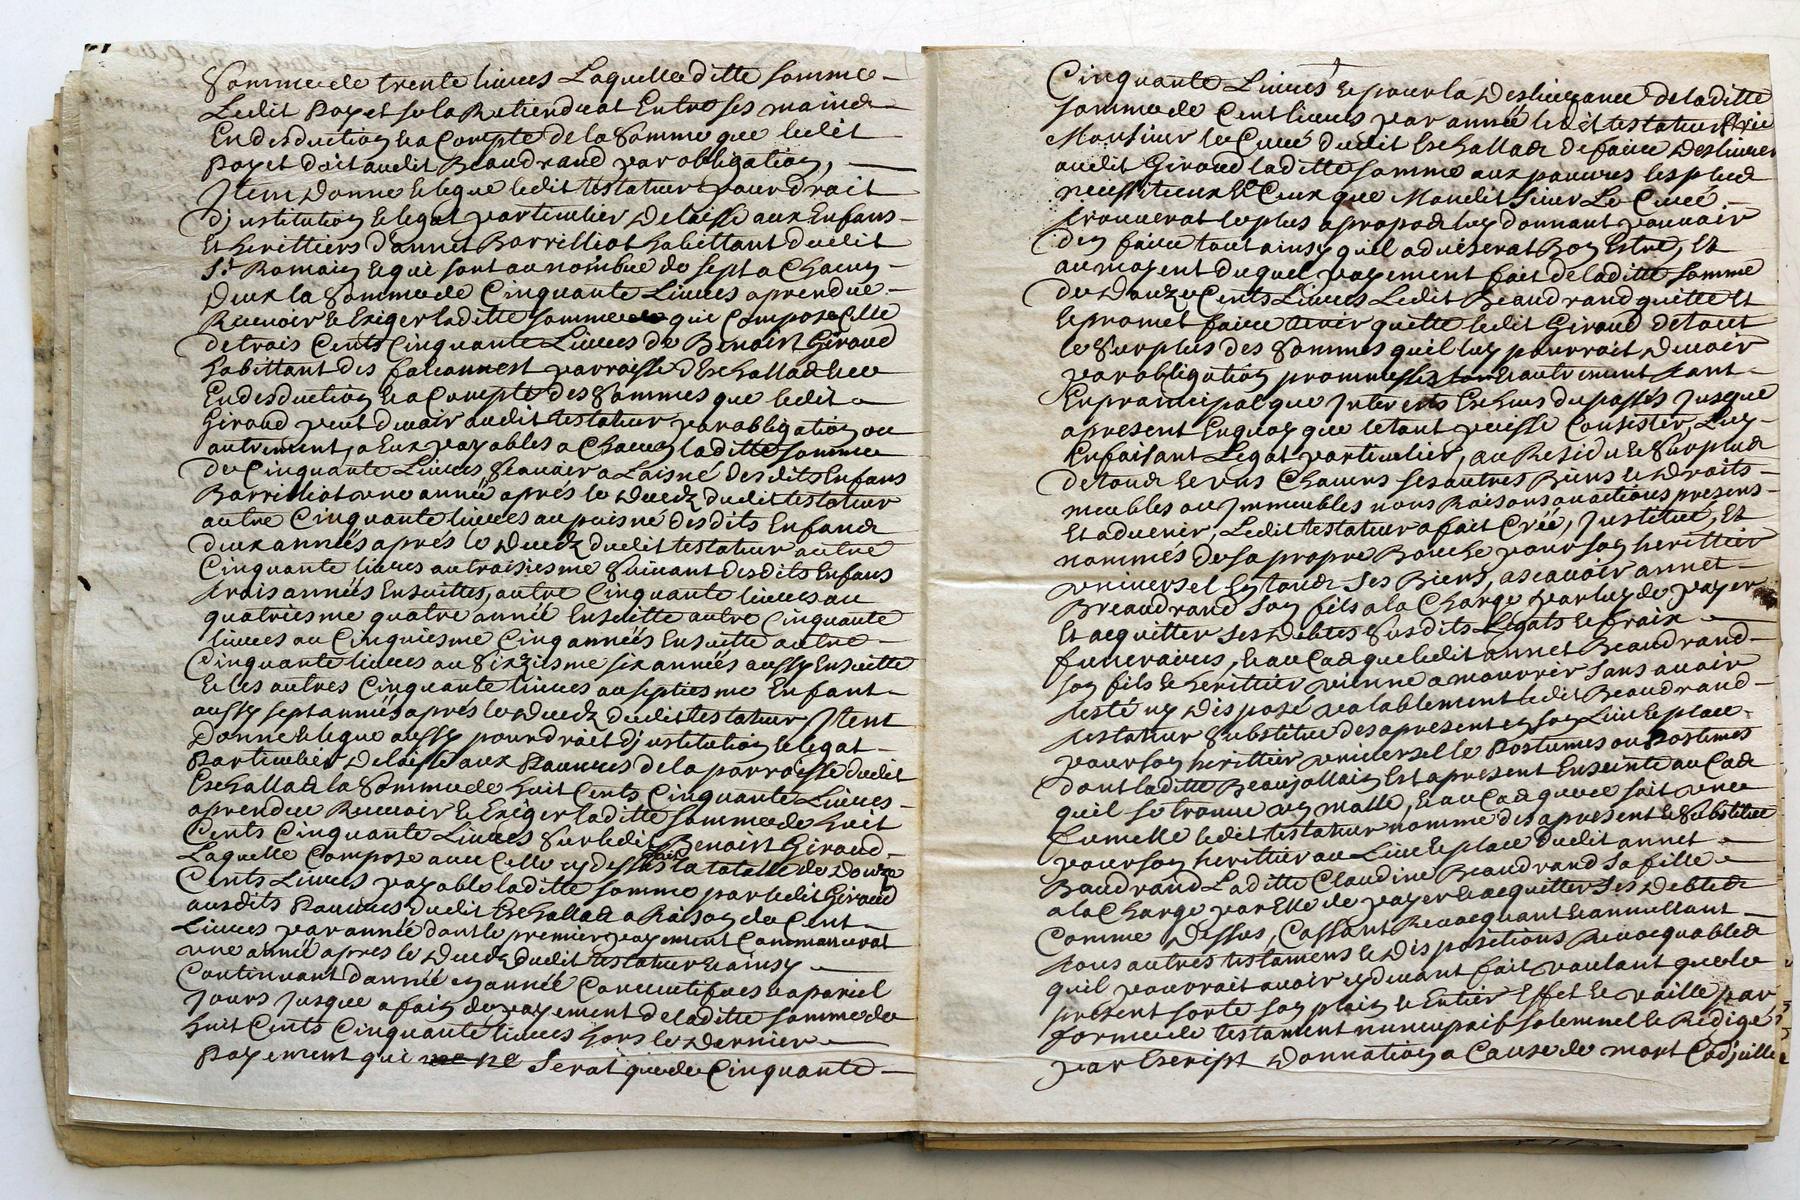 Somme de trente livres Laquelle ditte somme
Ledit Payet se la Retiendrat Entre ses mains
En desduction & a Compte de la Somme que ledit
Payet doit audit Beaudrand par obligation,
Item Donne & legue ledit testateur pour droit
d'institution & legat particulier Delaisse aux Enfans
Et heritiers d'annet Barrilliot habittant dudit
St Romain & qui sont au nombre de sept a Chacun
Deux la Somme de Cinquante Livres aprendre
Recevoir & Exiger laditte somme qui Compose Celle
de trois Cents Cinquante Livres de Benoist Giraud
habittant des falconnest parroisse d'Eschallas & ce
En desduction & a Compte des Sommes que ledit
Giraud peut devoir audit testateur par obligation ou
autrement, a Eux payables a Chacun laditte somme
de Cinquante Livres Scavoir a Laisné desdits Enfans
Barrilliot une année aprés le Decedz dudit testateur
autre Cinquante livres au puisné desdits Enfans
deux années aprés le Decedz dudit testateur autre
Cinquante livres au troisiesme Suivant desdits Enfans
trois années Ensuittes, autre Cinquante livres au
quatriesme quatre année Ensuitte autre Cinquante
livres au Cinquiesme Cinq années Ensuitte autre
Cinquante livres au Sixziesme six années aussy Ensuitte
& les autres Cinquante livres au septiesme Enfant
aussy sept années aprés le Decedz dudit testateur, Item
Donne & legue aussy pour droit d'institution & legat
Particulier Delaisse aux Pauvres de la parroisse dudit
Eschallas la Somme de huit Cents Cinquante Livres
aprendre Recevoir & Exiger laditte somme de huit
Cents Cinquante Livres Sur ledit Benoist Giraud
Laquelle Compose avec Celle cy dessus la totalle de Douze
Cents Livres payable laditte somme par ledit Giraud
ausdits Pauvres dudit Eschallas a Raison de Cent
Livres par année dont le premier payement Commancerat
une année aprés le Decedz dudit testateur & ainsy
Continuant d'année en année Consecutifves & apareil
Jours Jusque a fait de payement de laditte somme de
huit Cents Cinquante livres hors le Dernier
Payement qui ne Serat que de Cinquante
Cinquante Livres & pour la Deslivrance de laditte
somme de Cent livres par année ledit testateur Prie
Monsieur le Curé dudit Eschallas de faire Deslivrer
audit Giraud laditte somme aux pauvres les plus
necessiteux & Ceux que Mondit Sieur Le Curé
trouverat le plus apropos luy donnant pouvoir
d'en faire tout ainsy qu'il adviserat Bon Estre, Et
au moyent duquel payement fait de laditte somme
de Douze Cents Livres Ledit Beaudrand quitte Et
& promet faire tenir quitte ledit Giraud de tout
le Surplus des Sommes qu'il luy pourroit Devoir
par obligation promesses & autrement tant
En principal que Interests Escheus du passés Jusque
apresent En quoy que le tout puisse Consister, Luy
En faisant Legat particulier, au Residu & Surplus
de tous & uns Chacuns ses autres Biens & Droits
meubles ou Immeubles noms Raisons ou actions presens
Et advenir, Ledit testateur a fait Créé, Institué, Et
nommés de sa propre Bouche pour son heritier
universel En tous Ses Biens, ascavoir annet
Breaudrand son fils a la Charge par luy de payer
Et acquitter Ses Debtes Susdits Legats & fraix
funeraires, & au Cas que ledit annet Beaudrand
son fils & heritier vienne a mourrir sans avoir
testé ny Disposé valablement ledit Beaudrand
testateur Substitue desapresent en son Lieu & place
pour son heritier universel le Postumes ou Postumes
dont laditte Beaujollain Est apresent Enseinte au Cas
qu'il se trouve un malle, & au Cas que ce soit une
fumelle ledit testateur nomme des apresent & Substitue
pour son heritier au Lieu & place dudit annet
Baudrand Laditte Claudine Beaudrand Sa fille
a la Charge par Elle de payer & acquitter Ses Debtes
Comme Dessus, Cassant Revocquant & annullant
tous autres testamens & dispositions Revocquables
qu'il pourroit avoir cy devant fait voulant que le
present sorte son plain & Entier Effet & vaille par
forme de testament nuncupatif solemnel & Redigé
par Escript Donnation a Cause de mort Codicille